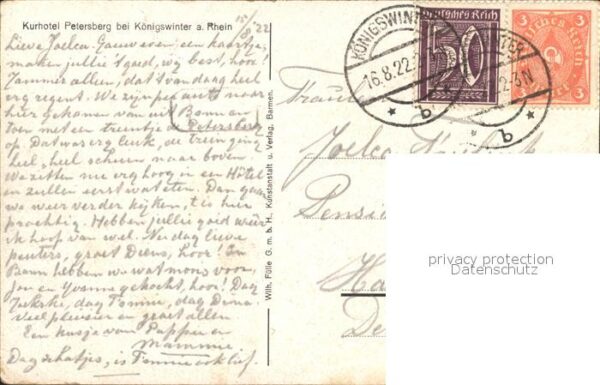 Kurhotel Petersberg bei Königswinter a. Rhein
15/8 '22
Lieve Joelca. Gauw even een kaartje,
maken jullie 't goed, wij best, hoor!
Jammer alleen, dat 't vandaag heel
erg regent. We zijn per auto naar
hier gekomen van uit Bonn en
toen met een treintje de Petersberg
op. Dat was erg leuk, de trein ging
heel, heel schuin naar boven.
We zitten nu erg hoog in een Hôtel
en zullen eerst wat eten. Dan gaan
we weer verder kijken, 't is hier
prachtig. Hebben jullie goed weer
ik hoop van wel. Nu dag lieve
peuters, groet Diens, hoor! In
Bonn hebben we wat moois voor
Jou en Yvonne gekocht, hoor! Dag
dag Tommie, dag Dina
veel plezier en groet allen
Een kusje van Pappie en
Mammie
Dag schatjes, is Tommie ook lief.
Wilh. Fülle G. m. b. H., Kunstanstalt u. Verlag, Barmen.
KÖNIGSWINTER
16.8.22
2-3 N
* b *
Deutsches Reich
50
Deutsches Reich
3
3
3
Joelca
Pensi
Ha
De
privacy protection
Datenschutz